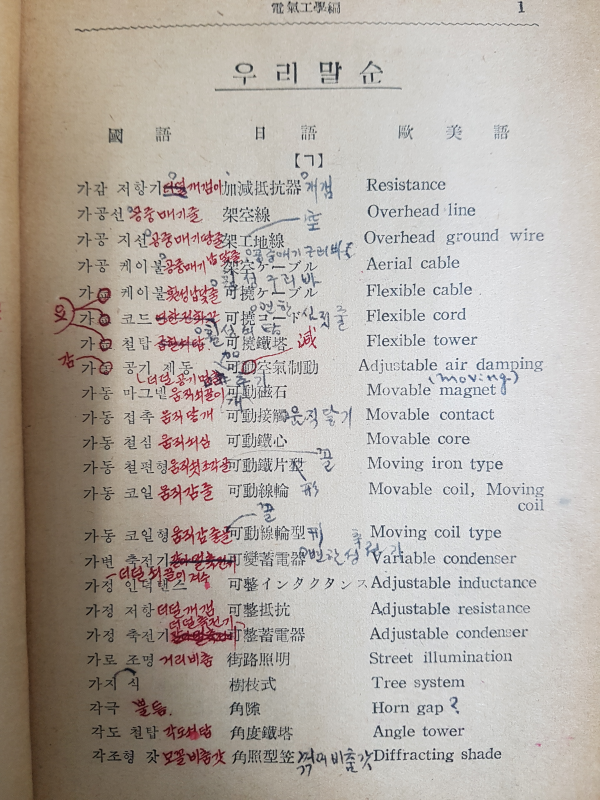 電氣工學編 1
우리말순
國語 日語 歐美語
【ㄱ】
가감 저항기 加減抵抗器 Resistance
가공선 공중매기줄 架空線 Overhead line
가공 지선 공중매기땅줄 架工地線 空 Overhead ground wire
가공 케이블 공중매기 架空ケーブル Aerial cable
케이블 可撓ケーブル Flexible cable
코드 可撓コード Flexible cord
철탑 可撓鐵塔 減 Flexible tower
공기 제동 空氣制動 Adjustable air damping
가동 마그넽 움직쇠끌이 可動磁石 Movable magnet (moving)
가동 접촉 움직닿개 可動接觸 움직닿기 Movable contact
가동 철심 움직쇠심 可動鐵心 Movable core
가동 철편형 可動鐵片型 꼴 Moving iron type
가동 코일 움직감줄 可動線輪 形 Movable coil, Moving
coil
꼴
가동 코일형 움직감줄꼴 可動線輪型 Moving coil type
가변 축전기 可變蓄電器 Variable condenser
가정 인덕탄스 可整インタクタンス Adjustable inductance
가정 저항 더덜개갬 可整抵抗 Adjustable resistance
더덜축전기
가정 축전기 可整蓄電器 Adjustable condenser
가로 조명 거리비춤 街路照明 Street illumination
가지 식 樹枝式 Tree system
각극 뿔틈 角隙 Horn gap ?
각도 철탑 각도쇠탑 角度鐵塔 Angle tower
각조형 갓 모꼴비춤갓 角照型笠 꺾어비춤갓 Diffracting shade